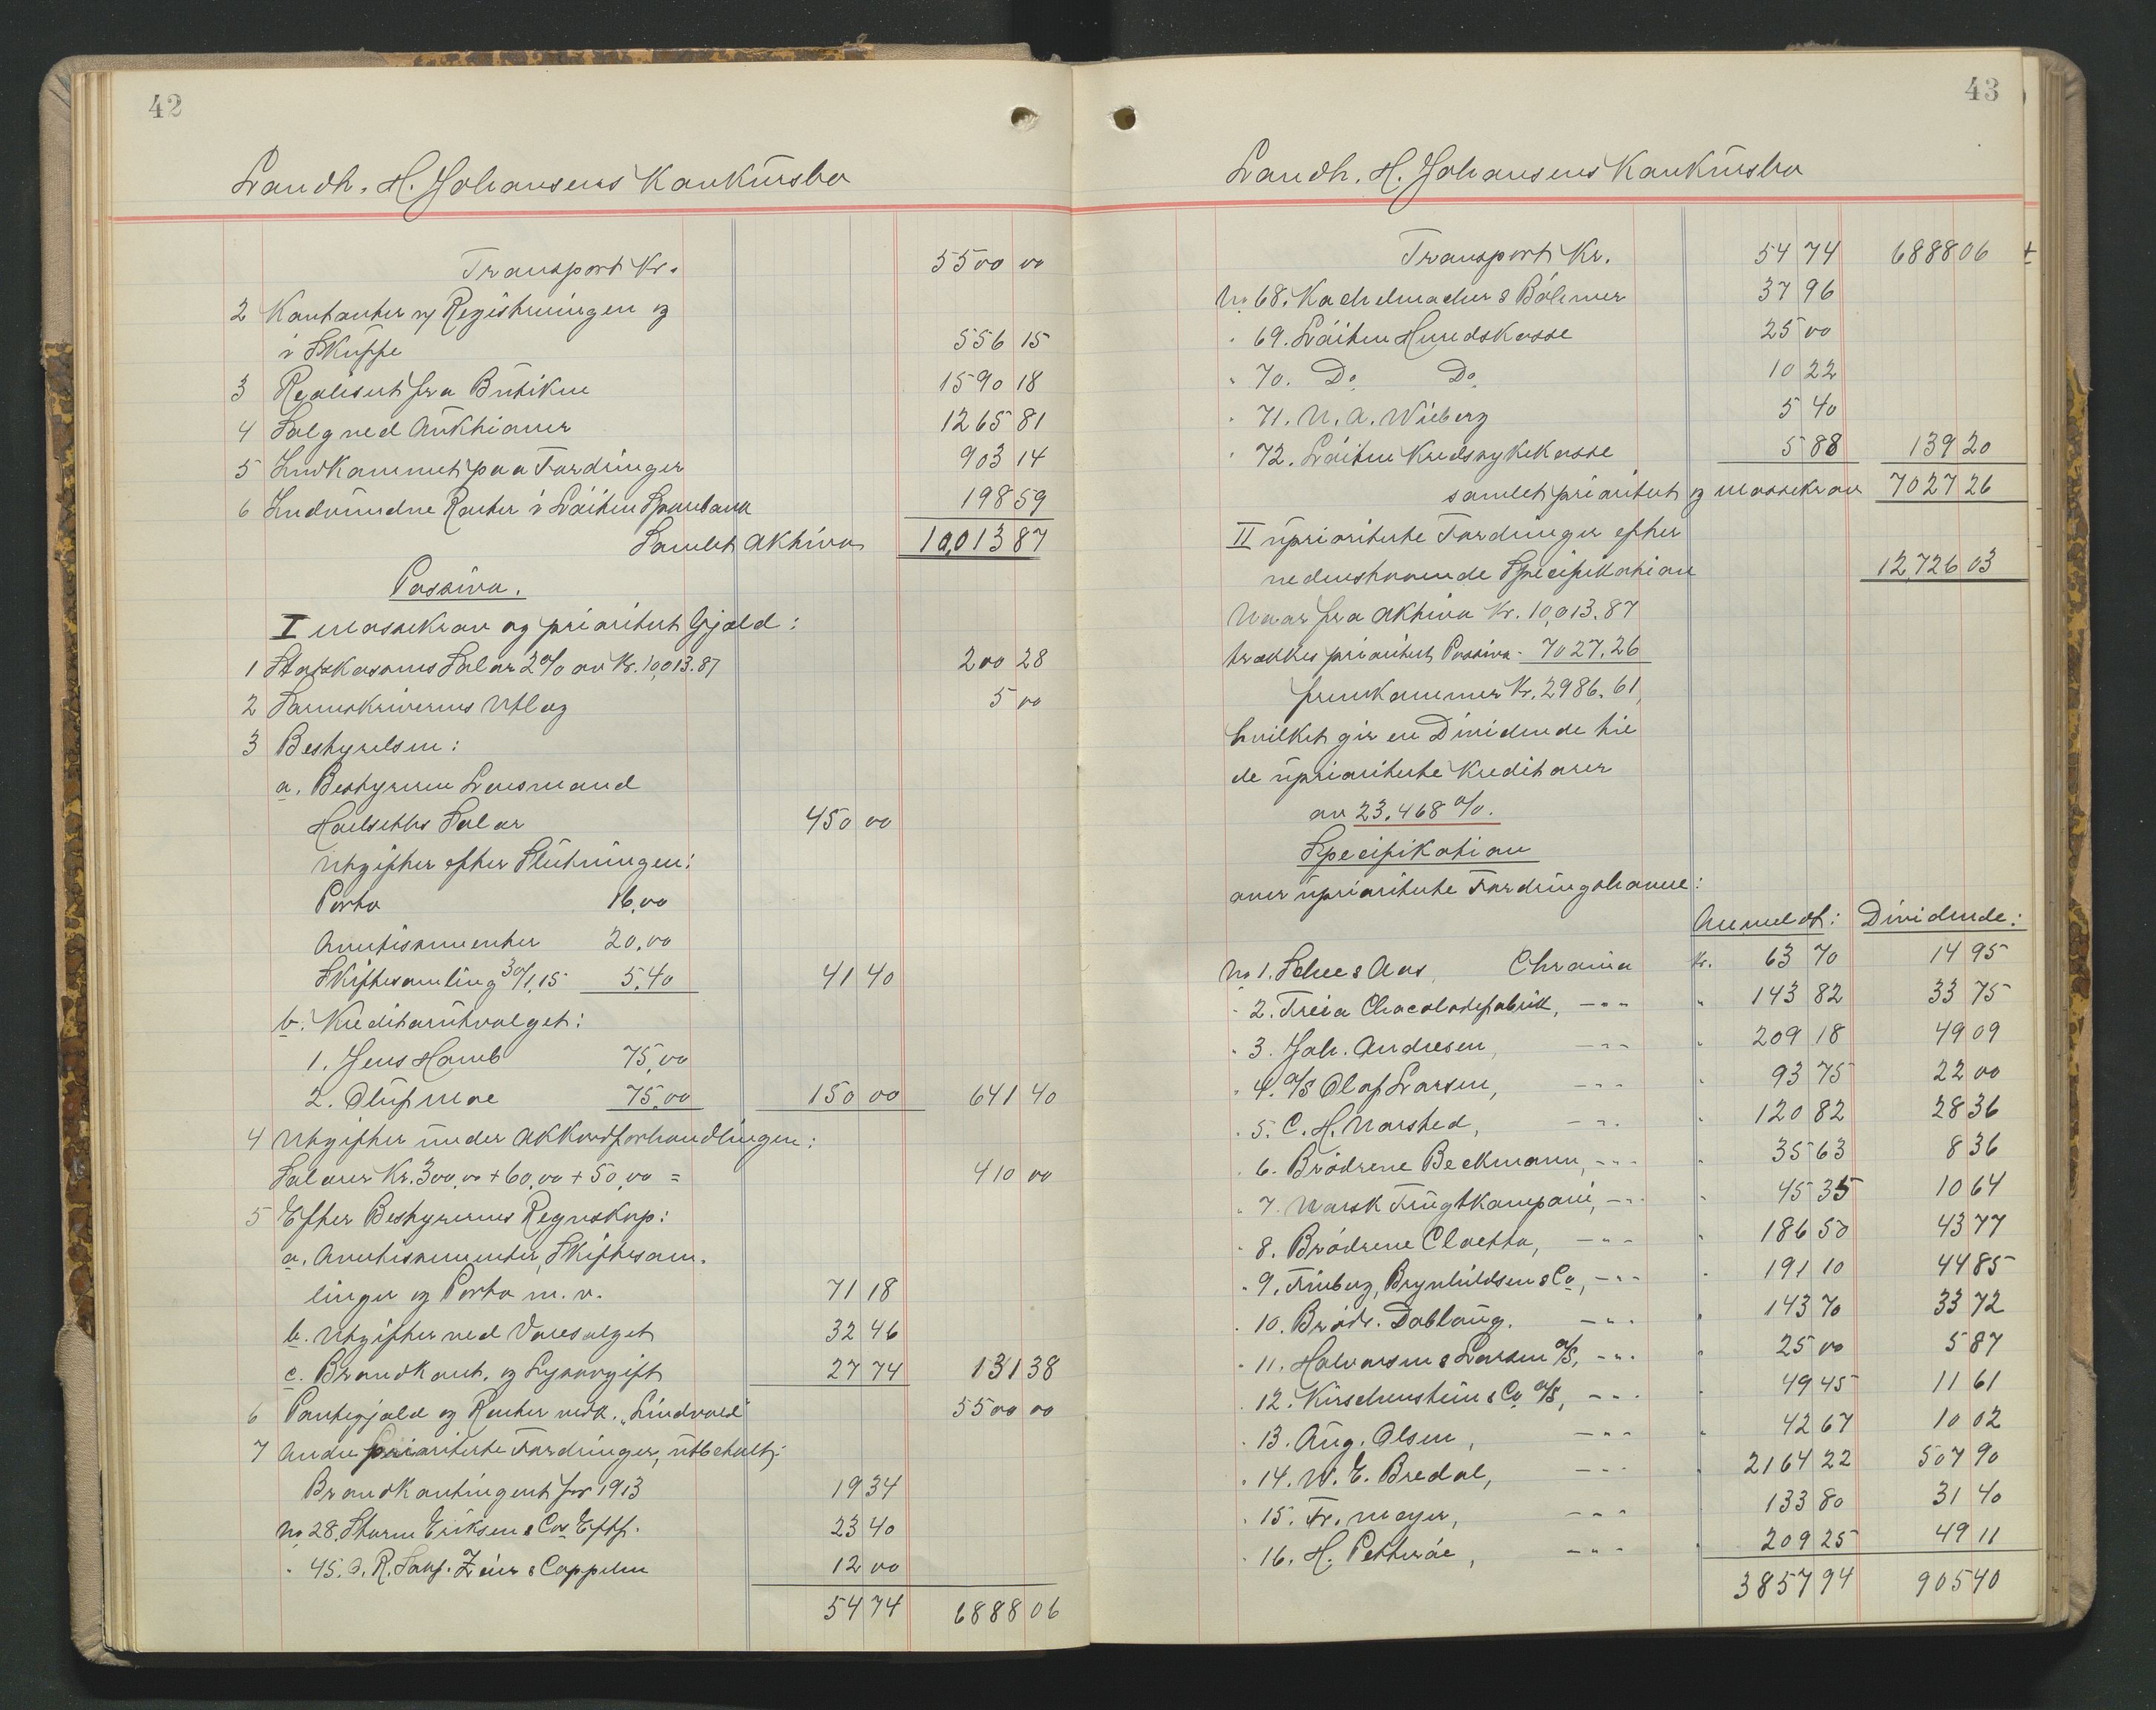 42
Landh. H. Johansens Konkursbo
Transport Kr. 5500 00
2 Kontanter v/ Registreringen og
i Skuffe 556 15
3 Realisert fra Butiken 1590 18
4 Salg ved Auktioner 1265 81
5 Indkommet paa Fordringer 903 14
6 Indvundne Renter i Löiten Sparebank 198 59
Samlet Aktiva 10,013 87
Passiva.
I Massekrav og prioritert Gjæld:
1 Statskassens Salær 2% av Kr. 10,013.87 200 28
2 Sorenskriverens Utlæg 5 00
3 Bestyrelsen:
a. Bestyreren Lensmand
Hoelseths Salær 450 00
Utgifter efter Slutningen:
Porto 16,00
Avertissementer 20,00
Skiftesamling 30/1.15 5.40 41 40
b. Kreditorutvalget:
1. Jens Homb 75,00
2. Oluf Moe 75,00 150 00 641 40
4 Utgifter under Akkordforhandlingen:
Salærer Kr. 300,00 + 60,00 + 50,00 = 410 00
5 Efter Bestyrerens Regnskap:
a. Avertissementer, Skiftesam-
linger og Porto m. v. 71 18
b. Utgifter ved Varesalget 32 46
c. Brandkont. og Lysavgift 27 74 131 38
6 Pantegjæld og Renter vedk. "Lindvold" 5500 00
7 Andre prioriterte Fordringer, utbetalt:
Brandkontingent for 1913 19 34
No 28. Sturm Eriksen & Cos Eftf. 23 40
" 45. O. R. Sakf. Zeier & Cappelen 12 00
54 74 6888 06
43
Landh. H. Johansens Konkursbo
Transport Kr. 54 74 6888 06 +
No 68. Kachelmacher & Böhmer 37 96
" 69. Löiten Hundskasse 25 00
" 70. Do. Do. 10 22
" 71. N. A. Wiberg 5 40
" 72. Löiten Kredssykekasse 5 88 139 20
samlet prioritert og massekrav 7027 26
II Uprioriterte Fordringer efter
nedenstaaende Specifikation 12,726 03
Naar fra Aktiva Kr. 10,013.87
trækkes prioritert Passiva - 7027.26
fremkommer Kr. 2986.61,
hvilket gir en Dividende til
de uprioriterte Kreditorer
av 23.468 %.
Specifikation
over uprioriterte Fordringshavere:
Anmeldt: Dividende:
No 1. Schee & Aas, Chrania Kr. 63 70 14 95
" 2. Freia Chocoladefabrik, -"- " 143 82 33 75
" 3. Joh. Andresen, -"- " 209 18 49 09
" 4. A/S Olaf Larsen, -"- " 93 75 22 00
" 5. C. H. Norsted, -"- " 120 82 28 36
" 6. Brödrene Beckmann, -"- " 35 63 8 36
" 7. Norsk Frugtkompani, -"- " 45 35 10 64
" 8. Brödrene Cloetta, -"- " 186 50 43 77
" 9. Friberg, Brynhildsen & Co, -"- " 191 10 44 85
" 10. Brödr. Dobloug. -"- " 143 70 33 72
" 11. Halvorsen & Larsen A/S, -"- " 25 00 5 87
" 12. Kirschenstein & Co A/S, -"- " 49 45 11 61
" 13. Aug. Olsen, -"- " 42 67 10 02
" 14. W. E. Bredal, -"- " 2164 22 507 90
" 15. Fr. Meyer, -"- " 133 80 31 40
" 16. H. Petteröe, -"- " 209 25 49 11
3857 94 905 40